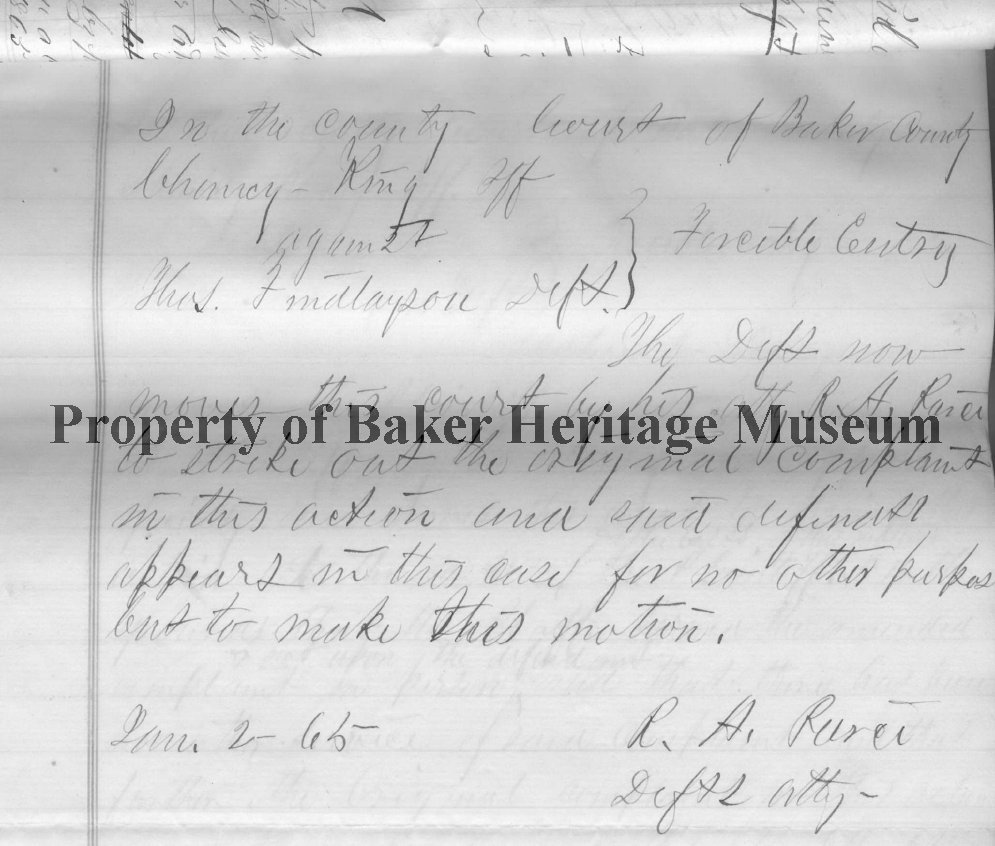 In the county Court of Baker County
Choncy - King Plf
against } Forcible Entry
Thos. Findlayson Deft.
The Deft now
moves this court by his atty R. A. Pierce
Property of Baker Heritage Museum
to strike out the original complaint
in this action and said defindat
appears in this case for no other purpos
but to make this motion.
Jan. 2 - 65
R. A. Pierce
Defts atty -